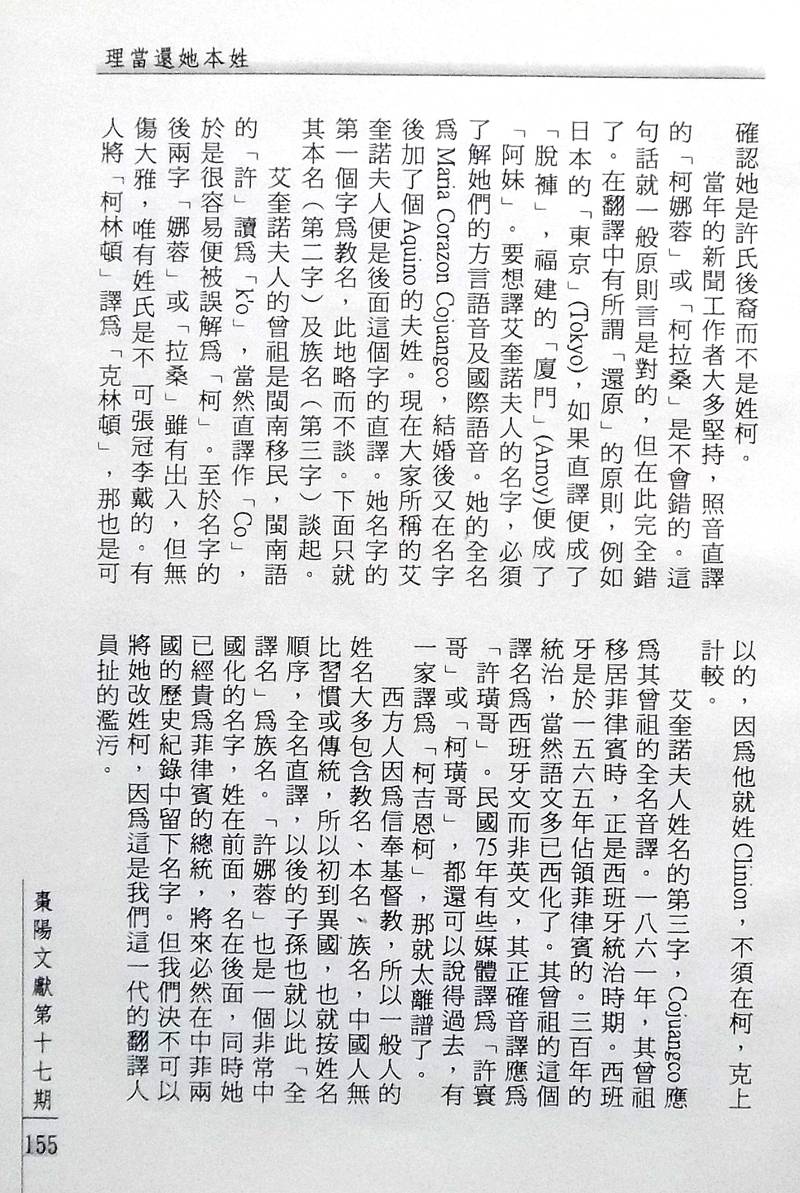 理當還她本姓
確認她是許氏後裔而不是姓柯。
當年的新聞工作者大多堅持，照音直譯
的「柯娜蓉」或「柯拉桑」是不會錯的。這
句話就一般原則言是對的，但在此完全錯
了。在翻譯中有所謂「還原」的原則，例如
日本的「東京」(Tokyo)，如果直譯便成了
「脫褲」，福建的「廈門」(Amoy)便成了
「阿妹」。要想譯艾奎諾夫人的名字，必須
了解她們的方言語音及國際語音。她的全名
爲 Maria Corazon Cojuangco，結婚後又在名字
後加了個Aquino的夫姓。現在大家所稱的艾
奎諾夫人便是後面這個字的直譯。她名字的
第一個字爲教名，此地略而不談。下面只就
其本名（第二字）及族名（第三字）談起。
艾奎諾夫人的曾祖是閩南移民，閩南語
的「許」讀爲「k'o」，當然直譯作「Co」，
於是很容易便被誤解爲「柯」。至於名字的
後兩字「娜蓉」或「拉桑」雖有出入，但無
傷大雅，唯有姓氏是不 可張冠李戴的。有
人將「柯林頓」譯爲「克林頓」，那也是可
以的，因爲他就姓Clinion，不須在柯，克上
計較。
艾奎諾夫人姓名的第三字，Cojuangco應
爲其曾祖的全名音譯。一八六一年，其曾祖
移居菲律賓時，正是西班牙統治時期。西班
牙是於一五六五年佔領菲律賓的。三百年的
統治，當然語文多已西化了。其曾祖的這個
譯名爲西班牙文而非英文，其正確音譯應爲
「許璜哥」。民國75年有些媒體譯爲「許寰
哥」或「柯璜哥」，都還可以說得過去，有
一家譯爲「柯吉恩柯」，那就太離譜了。
西方人因爲信奉基督教，所以一般人的
姓名大多包含教名、本名、族名，中國人無
比習慣或傳統，所以初到異國，也就按姓名
順序，全名直譯，以後的子孫也就以此「全
譯名」爲族名。「許娜蓉」也是一個非常中
國化的名字，姓在前面，名在後面，同時她
已經貴爲菲律賓的總統，將來必然在中菲兩
國的歷史紀錄中留下名字。但我們決不可以
將她改姓柯，因爲這是我們這一代的翻譯人
員扯的濫污。
棗陽文獻第十七期
155